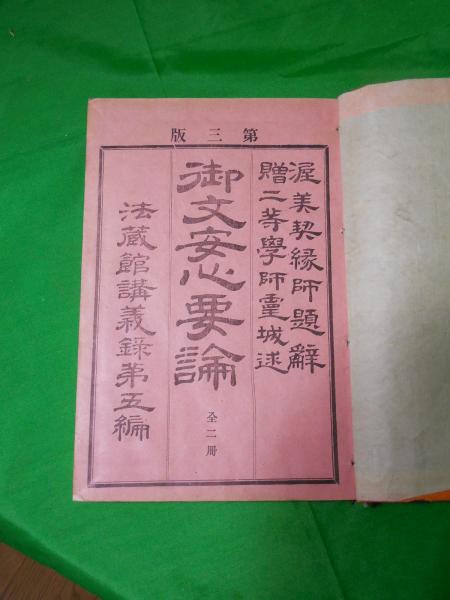 第三版
渥美契縁師題辭
贈二等學師霊城述
御文安心要論
全二冊
法蔵館講義錄第五編